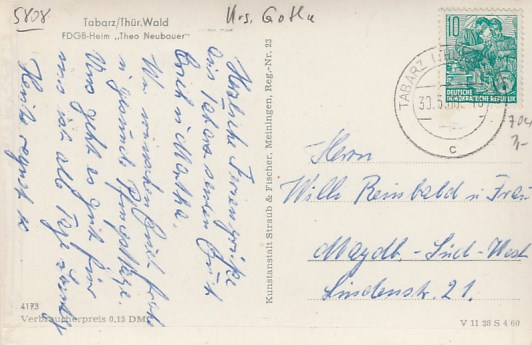 5808
Krs. Gotha
Tabarz/Thür. Wald
FDGB-Heim „Theo Neubauer"
Herzliche Feriengrüße
aus Tabarz senden Euch
Erich u. Martha.
Wir wünschen Euch frohe
u. gesunde Pfingsttage.
Uns geht es gut hier
was ich alle Tage
Heute regnet es
4193
Verbraucherpreis 0,13 DM
Kunstanstalt Straub & Fischer, Meiningen, Reg.-Nr. 23
10
DEUTSCHE
DEMOKRATISCHE REPUBLIK
TABARZ
30.5.
c
Herrn
Willi Reinbald u. Frau
Magdb.-Süd-West
Lindenstr. 21.
V 11 28 S 4 60